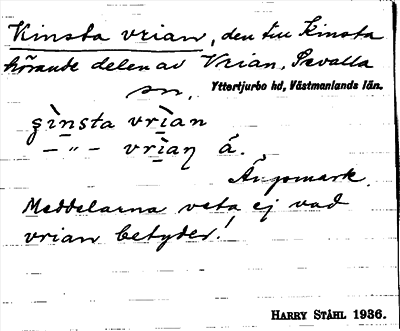 Kinsta vrian, den till Kinsta
hörande delen av Vrian, Sevalla
sn, Yttertjurbo hd, Västmanlands län.
şìnsta vrìan
– " – vrìaɳ å.
Ängsmark.
Meddelarna veta ej vad
vrian betyder!
HARRY STÅHL 1936.